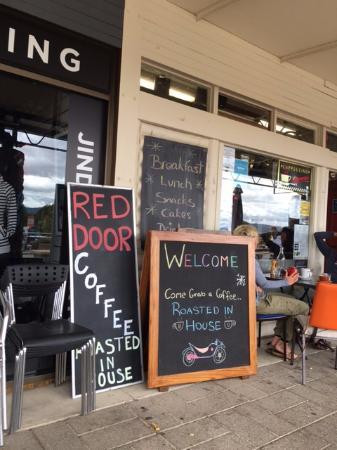 ING
JIND
Breakfast
Lunch
Snacks
Cakes
RED
DOOR
COFFEE
ROASTED
IN
HOUSE
WELCOME
Come Grab a Coffee...
ROASTED IN
HOUSE